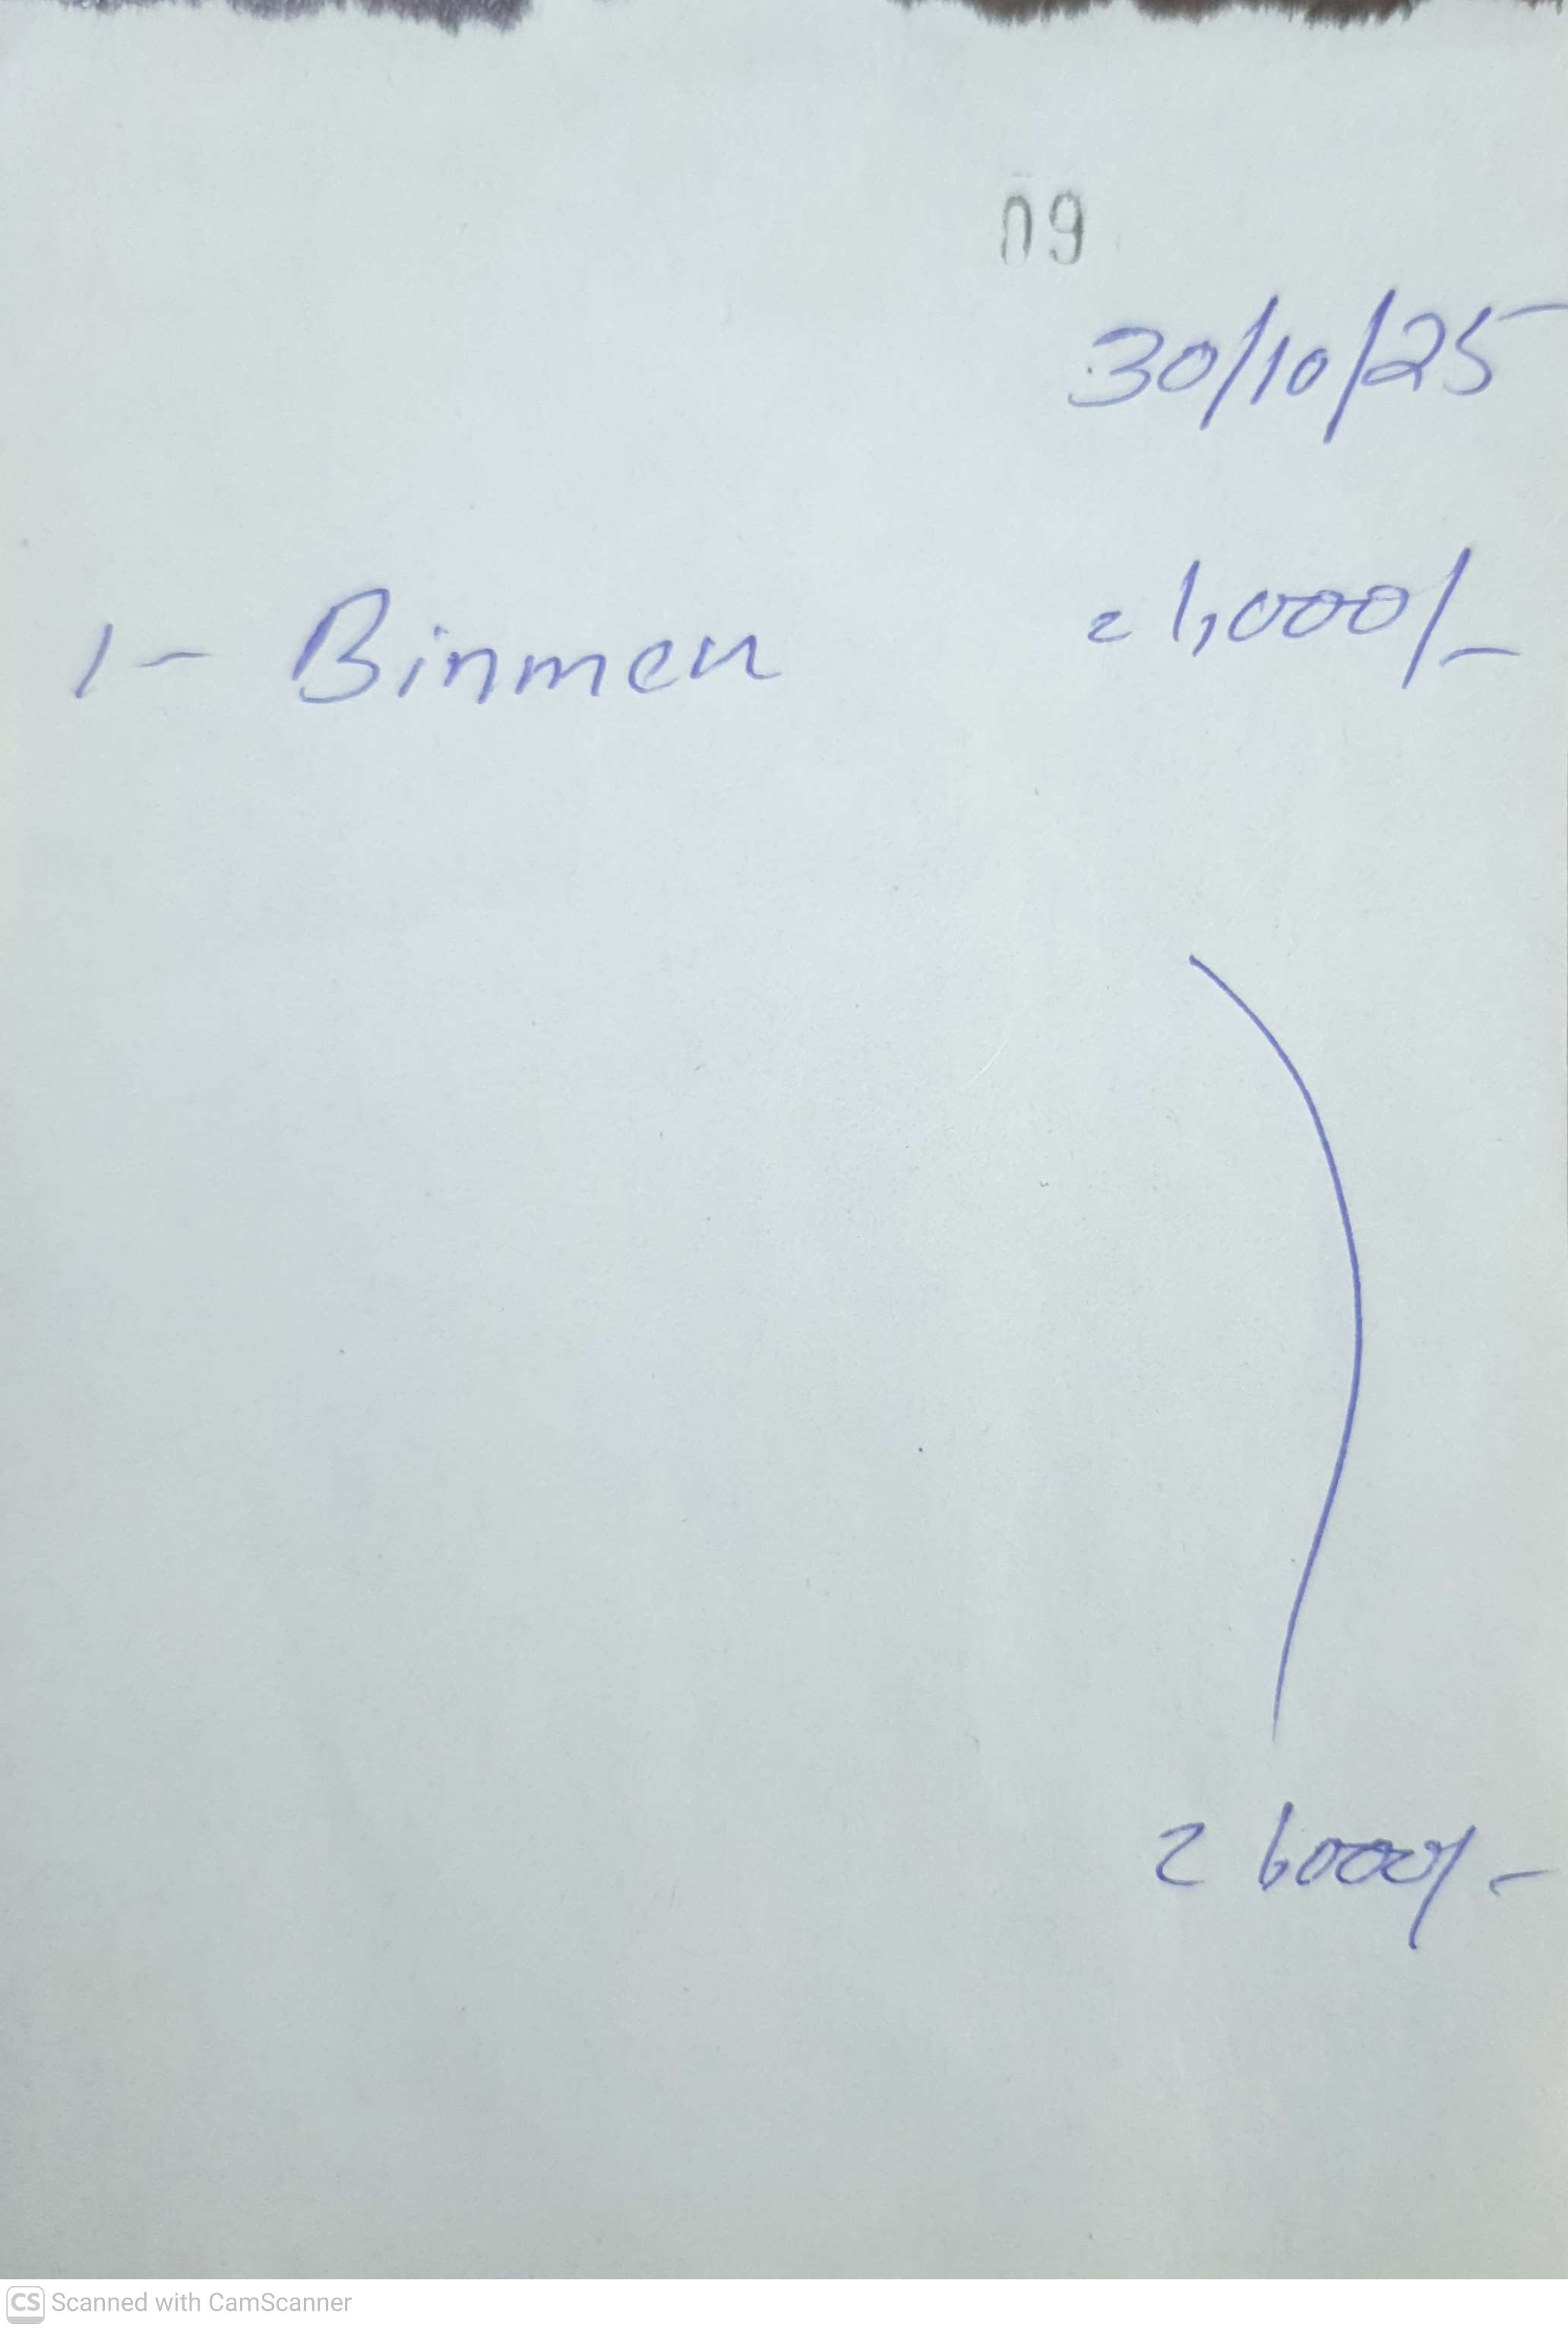 09
30/10/25
= 1,000/-
1- Binmen
= 6000/-
CS Scanned with CamScanner